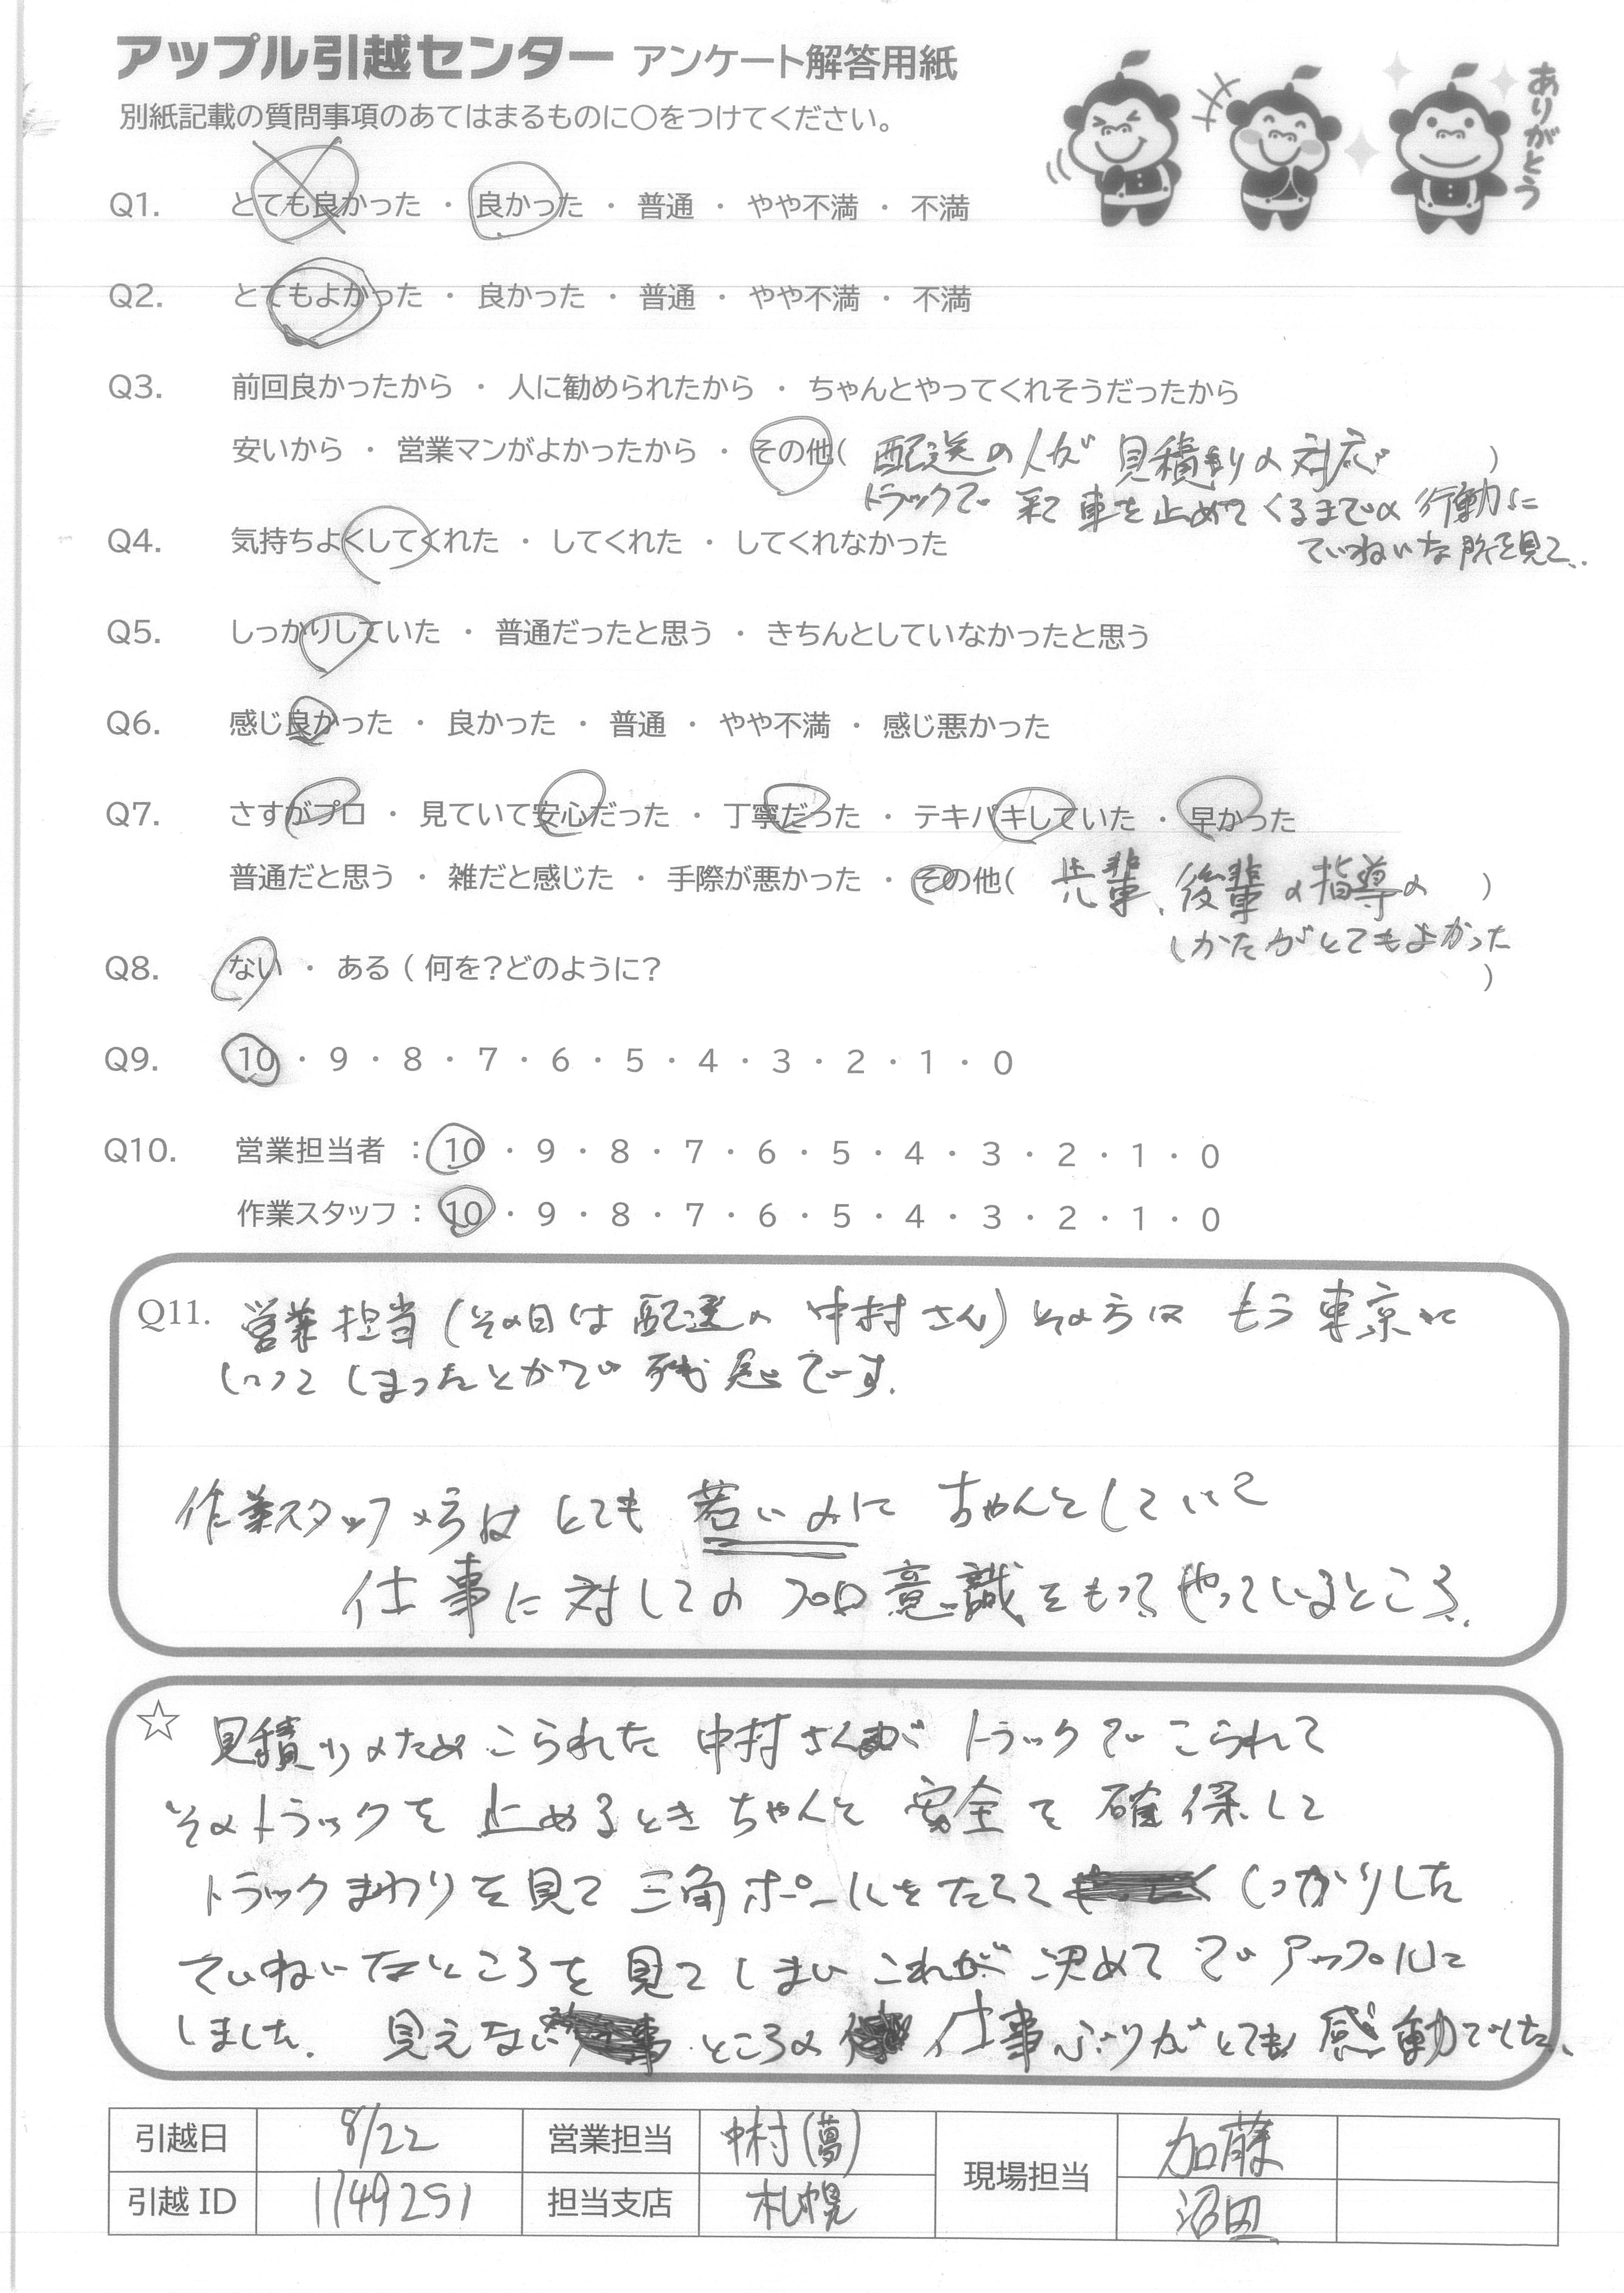 アップル引越センター アンケート解答用紙
ありがとう
別紙記載の質問事項のあてはまるものに○をつけてください。
Q1. とても良かった ・ 良かった ・ 普通 ・ やや不満 ・ 不満
Q2. とてもよかった ・ 良かった ・ 普通 ・ やや不満 ・ 不満
Q3. 前回良かったから ・ 人に勧められたから ・ ちゃんとやってくれそうだったから
安いから ・ 営業マンがよかったから ・ その他( 配送の人が 見積もりの対応で )
トラックで 来て 車を止めてくるまでの行動に
ていねいな所を見て..
Q4. 気持ちよくしてくれた ・ してくれた ・ してくれなかった
Q5. しっかりしていた ・ 普通だったと思う ・ きちんとしていなかったと思う
Q6. 感じ良かった ・ 良かった ・ 普通 ・ やや不満 ・ 感じ悪かった
Q7. さすがプロ ・ 見ていて安心だった ・ 丁寧だった ・ テキパキしていた ・ 早かった
普通だと思う ・ 雑だと感じた ・ 手際が悪かった ・ その他( 先輩、後輩の指導の )
しかたがとてもよかった
Q8. ない ・ ある ( 何を?どのように? )
Q9. 10 ・ 9 ・ 8 ・ 7 ・ 6 ・ 5 ・ 4 ・ 3 ・ 2 ・ 1 ・ 0
Q10. 営業担当者 : 10 ・ 9 ・ 8 ・ 7 ・ 6 ・ 5 ・ 4 ・ 3 ・ 2 ・ 1 ・ 0
作業スタッフ : 10 ・ 9 ・ 8 ・ 7 ・ 6 ・ 5 ・ 4 ・ 3 ・ 2 ・ 1 ・ 0
Q11. 営業担当(その日は配送の 中村さん) その方は もう東京に
いってしまったとかで 残念です.
作業スタッフの方は とても 若いのに ちゃんとしていて
仕事に対してのプロ意識をもってやっているところ.
☆ 見積りのため こられた 中村さんが トラックで こられて
そのトラックを 止めるとき ちゃんと 安全を 確保して
トラックまわりを見て 三角ポールをたてて しっかりした
ていねいなところを 見てしまい これが 決めてで アップルに
しました. 見えない ところの 仕事ぶりがとても 感動でした.
引越日 8/22 営業担当 中村(夢) 現場担当 加藤
引越ID 1149251 担当支店 札幌 沼田